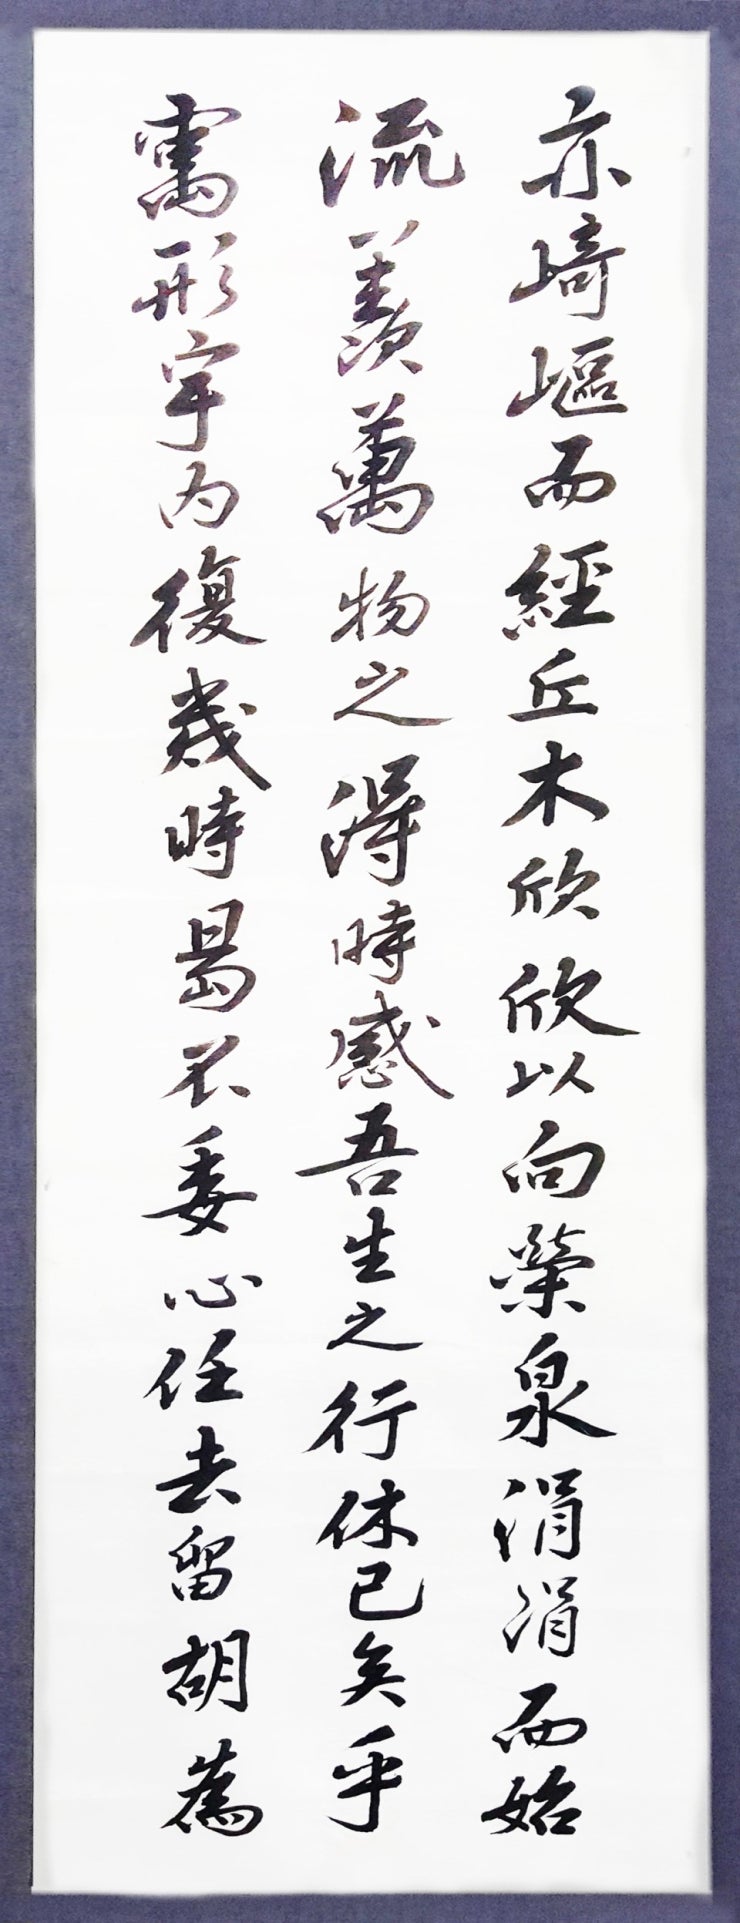 亦崎嶇而經丘木欣欣以向榮泉涓涓而始
流羨萬物之得時感吾生之行休已矣乎
寓形宇内復幾時曷不委心任去留胡為